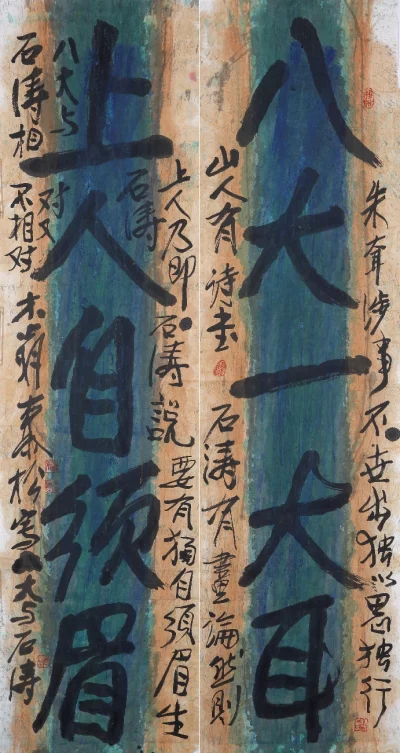 八大一大耳
朱耷涉事不世出独以愚独行
山人有诗书 石涛有畫論然則
上人自须眉
石涛
上人乃即石涛説要有猶自须眉生
八大与
石涛相
对又
不相对
松寫八大与石涛